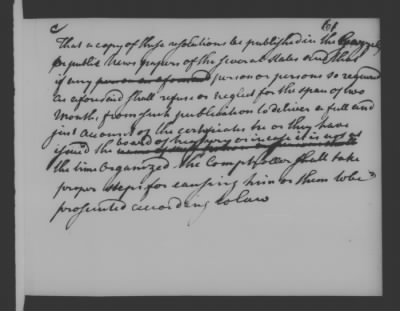 161
That a copy of these resolutions be published in the
public News papers of the several States and that
if any person or persons so required
as aforesaid shall refuse or neglect for the span of two
Months, from such publication to deliver a full and
just account of the certificates he or they have
issued the board of treasury or in case it is not at
the time Organized the Comptroller shall take
proper steps for causing him or them to be
prosecuted according to law